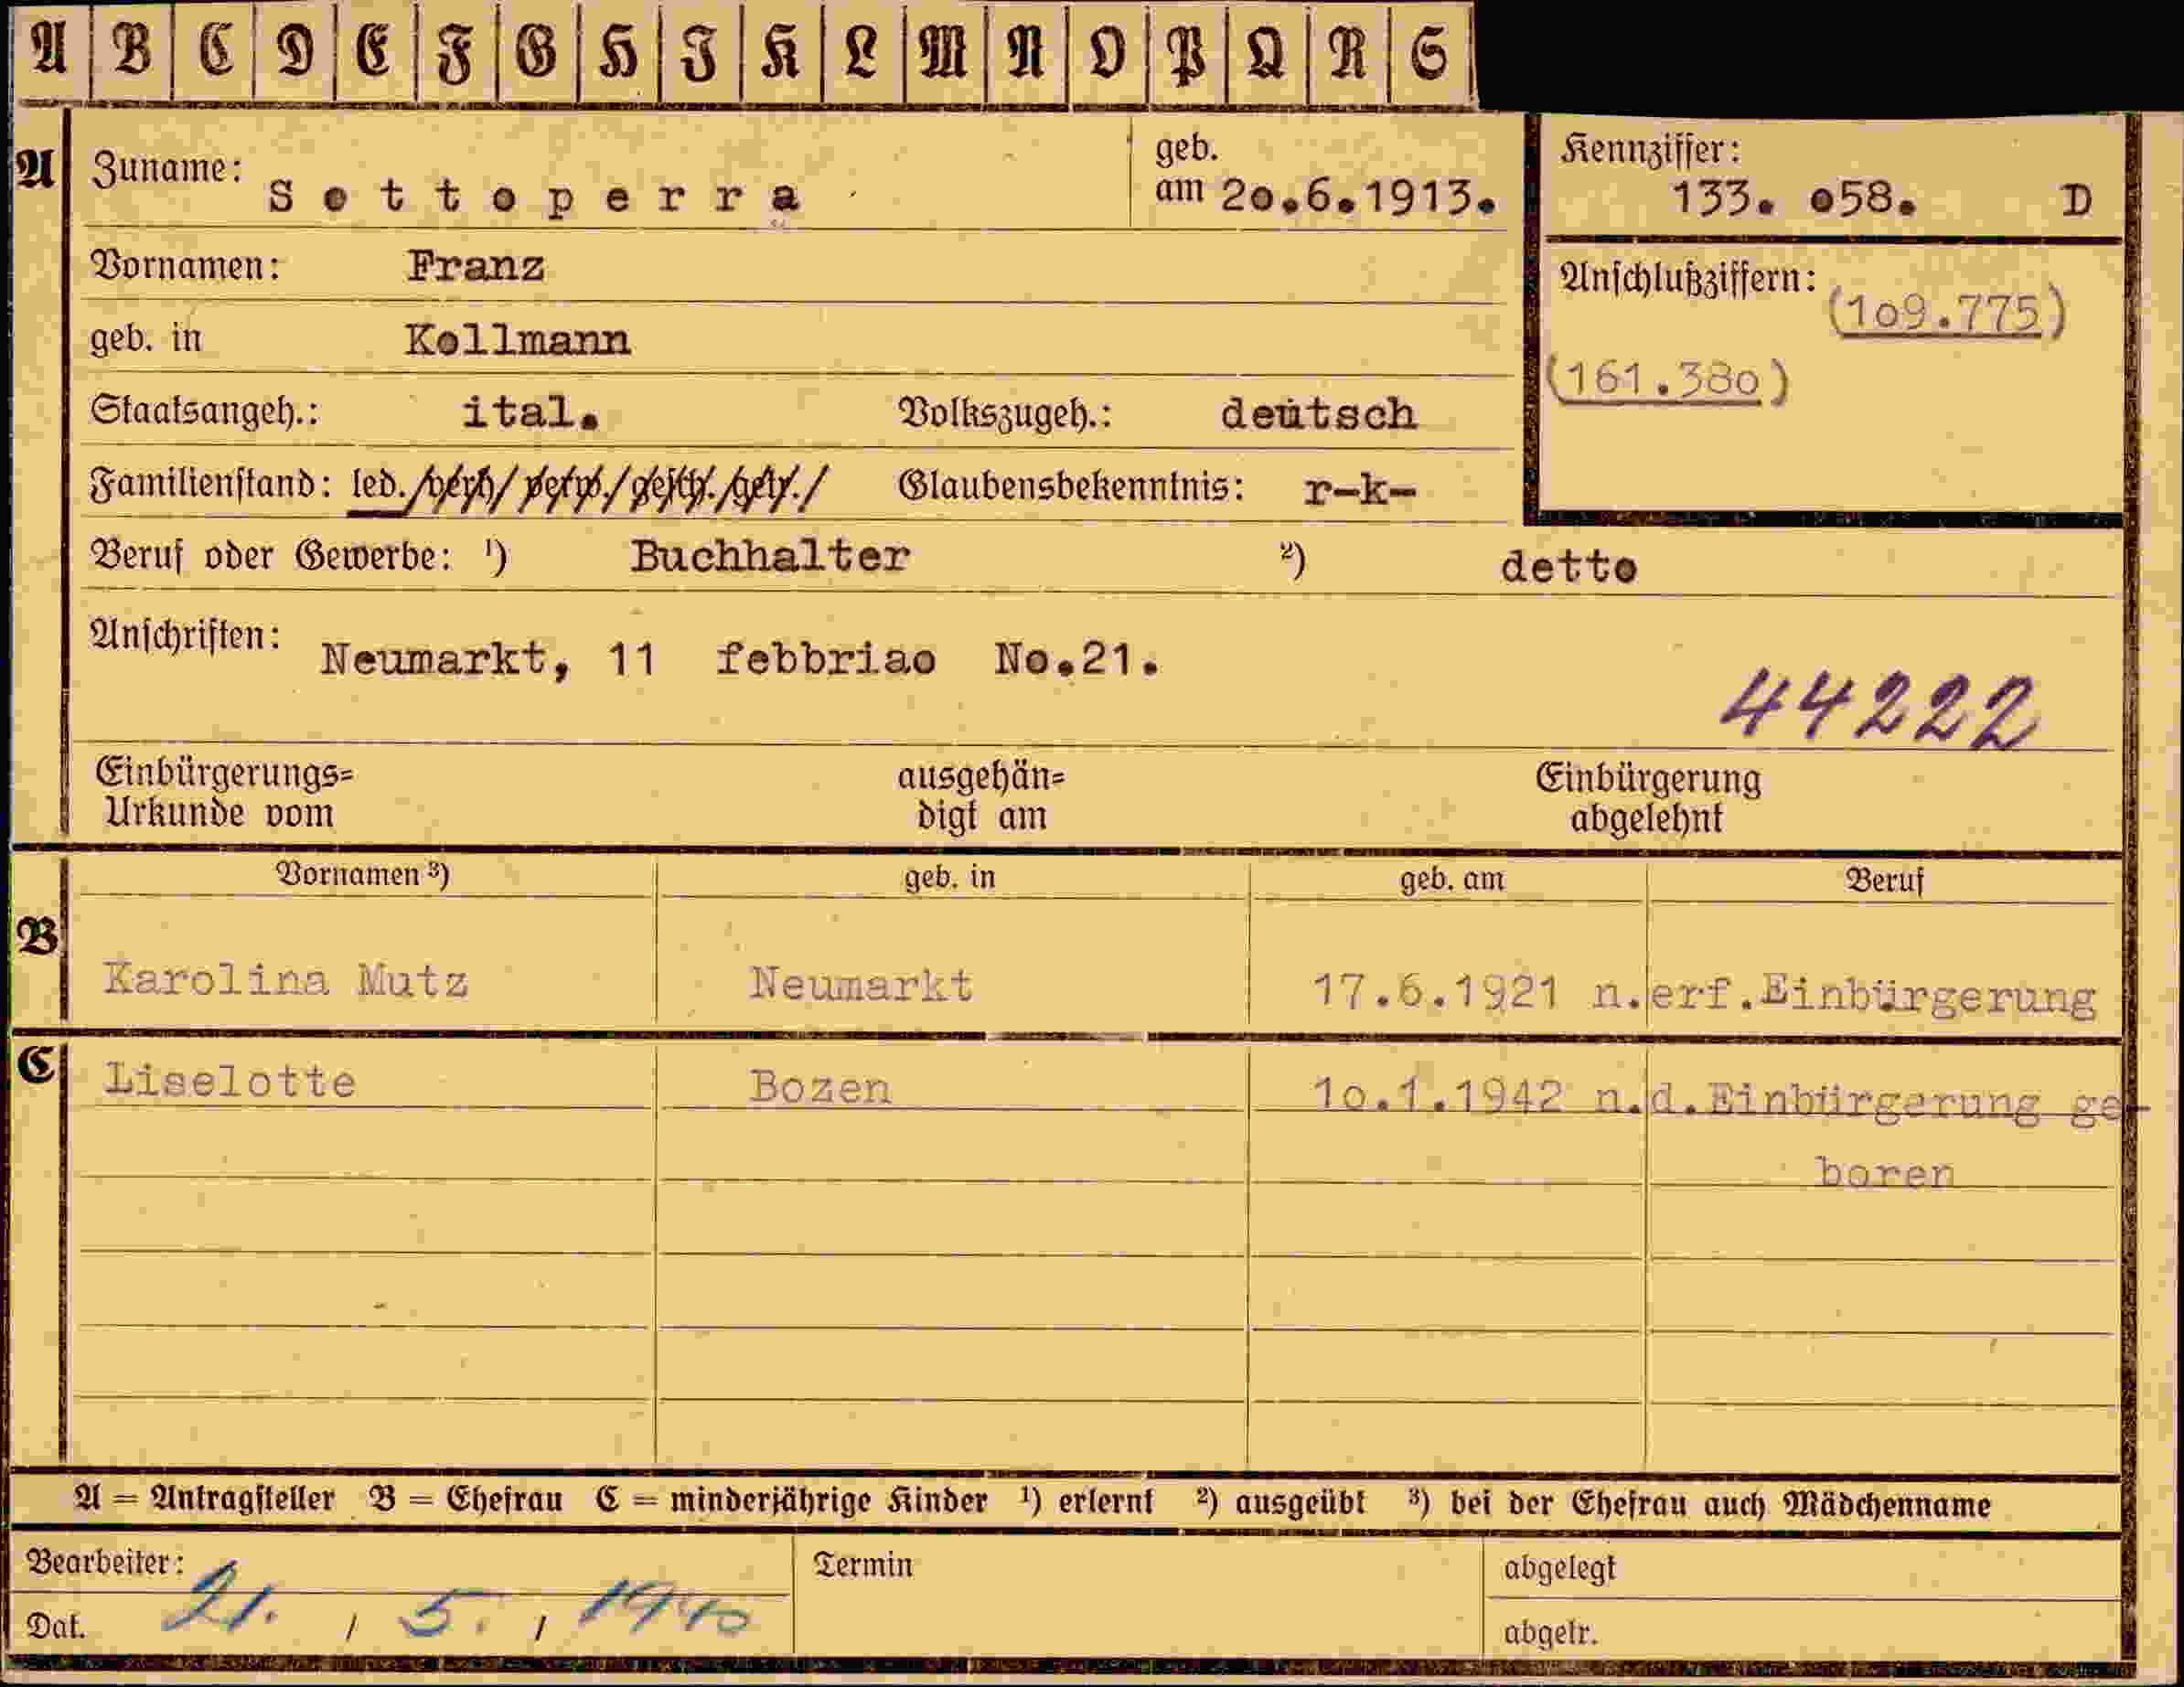 A B C D E F G H I K L M N O P Q R S
A Zuname: Sottoperra geb. am 2o.6.1913. Kennziffer: 133. o58. D
Vornamen: Franz Anschlußziffern: (1o9.775)
geb. in Kollmann (161.38o)
Staatsangeh.: ital. Volkszugeh.: deutsch
Familienstand: led./verh/verw./gesch./getr./ Glaubensbekenntnis: r-k-
Beruf oder Gewerbe: ¹) Buchhalter ²) detto
Anschriften: Neumarkt, 11 febbriao No.21.
44222
Einbürgerungs= ausgehän= Einbürgerung
Urkunde vom digt am abgelehnt
Vornamen ³) geb. in geb. am Beruf
B Karolina Mutz Neumarkt 17.6.1921 n.erf.Einbürgerung
C Liselotte Bozen 1o.1.1942 n.d.Einbürgerung ge-
boren
A = Antragsteller B = Ehefrau C = minderjährige Kinder ¹) erlernt ²) ausgeübt ³) bei der Ehefrau auch Mädchenname
Bearbeiter: Termin abgelegt
Dat. 21. / 5. / 1940 abgetr.